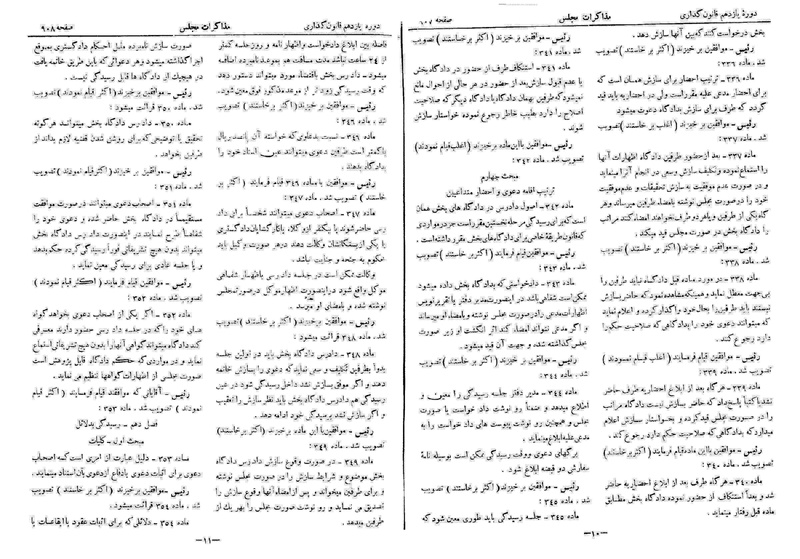 دورهٔ یازدهم قانون‌گذاری
مذاکرات مجلس
صفحه ۹۰۷
بخش درخواست کند که بین آنها سازش دهد.
رئیس - موافقین برخیزند (اکثر برخاستند) تصویب
شد. ماده ۳۳۶:
ماده ۳۳۶ - ترتیب احضار برای سازش همان است که
برای احضار مدعی علیه مقرر است ولی در احضاریه باید قید
گردد که طرف برای سازش بدادگاه دعوت میشود
رئیس - موافقین برخیزند (اغلب برخاستند) تصویب
شد. ماده ۳۳۷:
ماده ۳۳۷ - بعد از حضور طرفین دادگاه اظهارات آنها
را استماع نموده و تکلیف سازش وسعی در انجام آنرا مینماید
و در صورت عدم موفقیت به سازش تحقیقات و عدم موفقیت
خود را در صورت مجلس نوشته بامضاء طرفین میرساند و هر
گاه یکی از طرفین و یا هر دو طرف نخواهند امضاء کنند مراتب
را دادگاه بخش در صورت مجلس قید میکند.
رئیس - موافقین برخیزند (اکثر برخاستند) تصویب
شد. ماده ۳۳۸:
ماده ۳۳۸ - در مورد ماده قبل دادگاه نباید طرفین را
بی‌جهت معطل نماید و همینکه مشاهده نمود که حاضر بسازش
نیستند باید طرفین را بحال خود واگذار کرده و اعلام نماید
که میتوانند دعوی خود را بدادگاهی که صلاحیت حکم را
دارد رجوع کند.
رئیس - موافقین قیام فرمایند (اغلب قیام نمودند)
تصویب شد. ماده ۳۳۹:
ماده ۳۳۹ - هرگاه بعد از ابلاغ احضاریه طرف حاضر
نشد یا کتباً پاسخ داد که حاضر بسازش نیست دادگاه مراتب
را در صورت مجلس قید کرده و بخواستار سازش اعلام
میدارد که بدادگاهی که صلاحیت حکم دارد رجوع کند.
رئیس - موافقین با این ماده قیام فرمایند (اکثر برخاستند)
تصویب شد. ماده ۳۴۰:
ماده ۳۴۰ - هرگاه طرف بعد از ابلاغ احضاریه حاضر
شد و بعداً استنکاف از حضور نمود دادگاه بخش مطابق
ماده قبل رفتار مینماید.
رئیس - موافقین برخیزند (اکثر برخاستند) تصویب
شد. ماده ۳۴۱:
ماده ۳۴۱ - استنکاف طرف از حضور در دادگاه بخش
یا عدم قبول سازش بعد از حضور در هر حالی از احوال مانع
نمیشود که طرفین بهمان دادگاه یا دادگاه دیگر که صلاحیت
اصلاح را دارد بطیب خاطر رجوع نموده خواستار سازش
شوند.
رئیس - موافقین با این ماده برخیزند (اغلب قیام نمودند)
تصویب شد. ماده ۳۴۲
مبحث چهارم
ترتیب اقامه دعوی و احضار متداعیین
ماده ۳۴۲ - اصول دادرسی در دادگاه های بخش همان
است که برای رسیدگی مرحله نخستین مقرر است جز در مواردی
که قانون طریقهٔ خاصی برای دادگاه‌های بخش مقرر داشته است.
رئیس - موافقین قیام فرمایند (اکثر برخاستند) تصویب
شد. ماده ۳۴۳:
ماده ۳۴۳ - دادخواستی که بدادگاه بخش داده میشود
ممکن است شفاهی باشد در اینصورت مدیر دفتر یا تقریرنویس
اظهارات مدعی را در صورت مجلس نوشته و بامضاء او میرساند
و اگر مدعی نتواند امضاء کند اثر انگشت او زیر صورت
مجلس گذاشته شده و جهت آن قید میشود.
رئیس - موافقین برخیزند (اکثر برخاستند) تصویب
شد. ماده ۳۴۴:
ماده ۳۴۴ - مدیر دفتر جلسه رسیدگی را معین و
اطلاع میدهد و ضمناً رو نوشت داد خواست یا صورت
مجلس و همچنین رو نوشت پیوست های داد خواست را به
مدعی علیه ابلاغ مینماید.
برگهای دعوی و وقت رسیدگی ممکن است بوسیله نامه
سفارشی دو قبضه ابلاغ شود.
رئیس - موافقین برخیزند (اکثر برخاستند) تصویب
شد. ماده ۳۴۵:
ماده ۳۴۵ - جلسه رسیدگی باید طوری معین شود که
—۱۰—
دوره یازدهم قانون‌گذاری
مذاکرات مجلس
صفحه ۹۰۸
فاصله بین ابلاغ دادخواست و اظهار نامه و روز جلسه کمتر
از ۲۴ ساعت نباشد مدت مسافت هم بمدت نامبرده اضافه
میشود - دادرس بخش باقتضاء مورد میتواند دستور دهد
که وقت رسیدگی زودتر از موعد مذکور فوق معین شود.
رئیس - موافقین برخیزند (اکثر برخاستند) تصویب
شد. ماده ۳۴۶:
ماده ۳۴۶ - نسبت بدعاوی که خواسته آن پانصد ریال
یا کمتر است طرفین دعوی میتوانند عین اسناد خود را
بدادگاه بدهند.
رئیس - موافقین با ماده ۳۴۶ قیام فرمایند (اکثر بر
خاستند) تصویب شد. ماده ۳۴۷:
ماده ۳۴۷ - اصحاب دعوی میتوانند شخصاً برای داد
رسی حاضر شوند یا بیکنفر از وکلا یا کارگشایان دادگستری
یا یکی از بستگانشان وکالت دهند در هر صورت وکیل باید
محکوم به جنحه و جنایت نباشد.
بوکالت ممکن است در جلسه دادرسی باظهار شفاهی
موکل واقع شود در اینصورت اظهار موکل در صورتمجلس
نوشته شده و بامضای او میرسد.
رئیس - موافقین برخیزند (اکثر برخاستند) تصویب
شد. ماده ۳۴۸ قرائت میشود:
ماده ۳۴۸ - دادرس دادگاه بخش باید در اولین جلسه
بدواً بطرفین تکلیف و سعی نماید که دعوی را بسازش خاتمه
دهند و اگر موفق بسازش نشد داخل رسیدگی شود در عین
رسیدگی هم دادرس دادگاه بخش باید نظر سازش را تعقیب
و اگر سازش نشد برسیدگی خود ادامه دهد.
رئیس - موافقین با این ماده برخیزند (اکثر برخاستند)
تصویب شد. ماده ۳۴۹:
ماده ۳۴۹ - در صورت وقوع سازش دادرس دادگاه
بخش موضوع و شرایط سازش را در صورت مجلس نوشته
و برای طرفین میخواند و پس از امضاء آنها وقوع سازش را
تصدیق می نماید و رو نوشت صورت مجلس را بهر یک از
طرفین میدهد.
صورت سازش نامبرده مثل احکام دادگستری بموقع
اجرا گذاشته میشود و هر دعوائی که باین طریق خاتمه یافت
در هیچیک از دادگاه ها قابل رسیدگی نیست.
رئیس - موافقین برخیزند (اکثر قیام نمودند) تصویب
شد. ماده ۳۵۰ قرائت میشود:
ماده ۳۵۰ - دادرس دادگاه بخش میتواند هر گونه
تحقیق یا توضیحی که برای روشن شدن قضیه لازم بداند از
طرفین بخواهد.
رئیس - موافقین برخیزند (اکثر قیام نمودند) تصویب
شد. ماده ۳۵۱:
ماده ۳۵۱ - اصحاب دعوی میتوانند در صورت موافقت
مستقیماً در دادگاه بخش حاضر شده و دعوی خود را
شفاهاً طرح نمایند در اینصورت دادرس دادگاه بخش
میتواند بدون هیچ تشریفاتی فوراً رسیدگی کرده حکم بدهد
و یا جلسه عادی برای رسیدگی معین نماید.
رئیس - موافقین قیام فرمایند (اکثر قیام نمودند)
تصویب شد. ماده ۳۵۲
ماده ۳۵۲ - اگر یکی از اصحاب دعوی بخواهد گواه
های خود را که در جلسه داد رسی حضور دارند معرفی
کند دادگاه میتواند گواهی آنها را بدون هیچ تشریفاتی استماع
نماید و در مواردی که حکم دادگاه قابل پژوهش است
صورت مجلس از اظهارات گواهها تنظیم می نماید.
رئیس - آقایانی که موافقند قیام فرمایند (اکثر قیام
نمودند) تصویب شد. ماده ۳۵۳
فصل دهم - رسیدگی بدلائل
مبحث اول - کلیات
ماده ۳۵۳ - دلیل عبارت از امری است که اصحاب
دعوی برای اثبات دعوی یا دفاع از دعوی بآن استناد مینمایند.
رئیس - موافقین برخیزند (اکثر برخاستند) تصویب
شد. ماده ۳۵۴ قرائت میشود:
ماده ۳۵۴ - دلائلی که برای اثبات عقود یا ایقاعات یا
—۱۱—